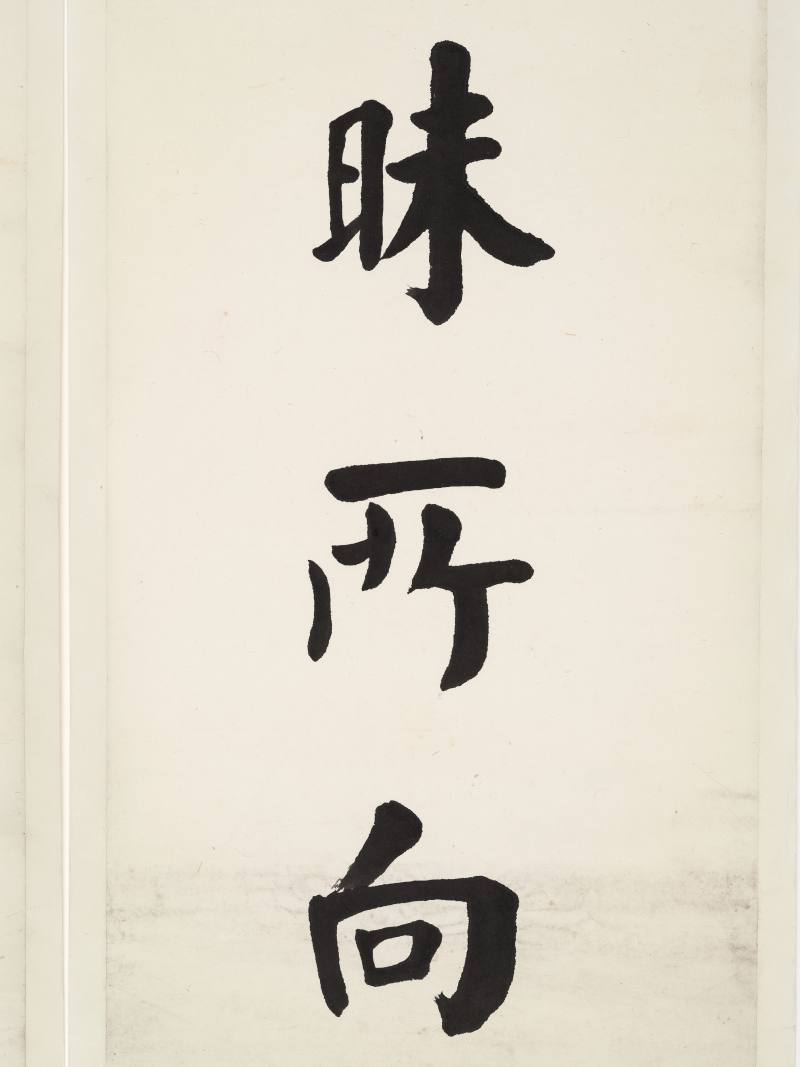 昧所向